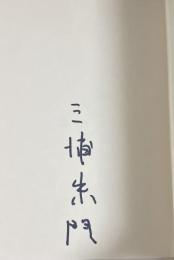 三浦朱門